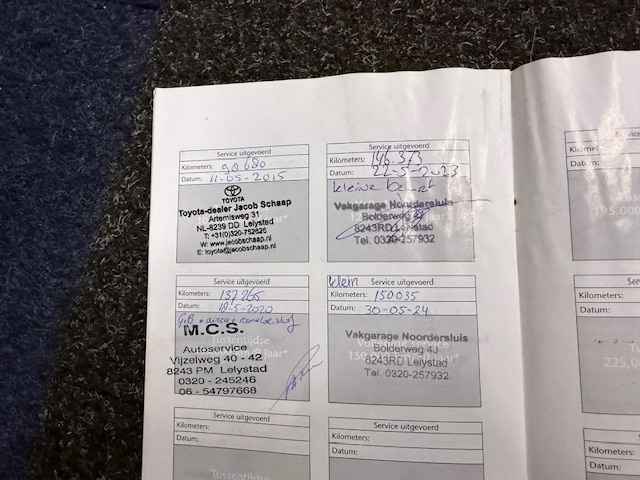 Service uitgevoerd
Kilometers: 90680
Datum: 11-05-2015
TOYOTA
Toyota-dealer Jacob Schaap
Artemisweg 31
NL-8239 DD Lelystad
T: +31(0)320-752625
W: www.jacobschaap.nl
E: toyota@jacobschaap.nl
Service uitgevoerd
Kilometers: 146.373
Datum: 22-5-2023
kleine beurt
Vakgarage Noordersluis
Bolderweg
8243RD Lelystad
Tel. 0320-257932
Service uitgevoerd
Kilometers: 137265
Datum: 18-5-2020
M.C.S.
Autoservice
Vijzelweg 40 - 42
8243 PM Lelystad
0320 - 245246
06 - 54797668
klein
Service uitgevoerd
Kilometers: 150035
Datum: 30-05-24
Vakgarage Noordersluis
Bolderweg 4J
8243RD Lelystad
Tel. 0320-257932
Service uitgevoerd
Kilometers:
Datum:
Tussentijdse
Service uitgevoerd
Kilometers:
Datum:
Kilom
Datum
195.000
Kilo
Dat
225.0
Kilo